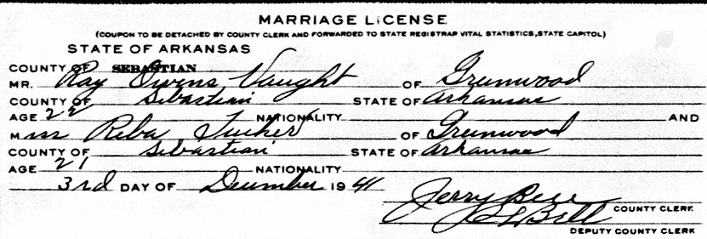 MARRIAGE LICENSE
(COUPON TO BE DETACHED BY COUNTY CLERK AND FORWARDED TO STATE REGISTRAR VITAL STATISTICS, STATE CAPITOL)
STATE OF ARKANSAS
COUNTY OF SEBASTIAN
MR. Ray Owens Vaught OF Greenwood
COUNTY OF Sebastian STATE OF Arkansas
AGE 22 NATIONALITY AND
Miss Reba Tucker OF Greenwood
COUNTY OF Sebastian STATE OF Arkansas
AGE 21 NATIONALITY
3rd DAY OF December 1941
Jerry COUNTY CLERK
Bell
DEPUTY COUNTY CLERK